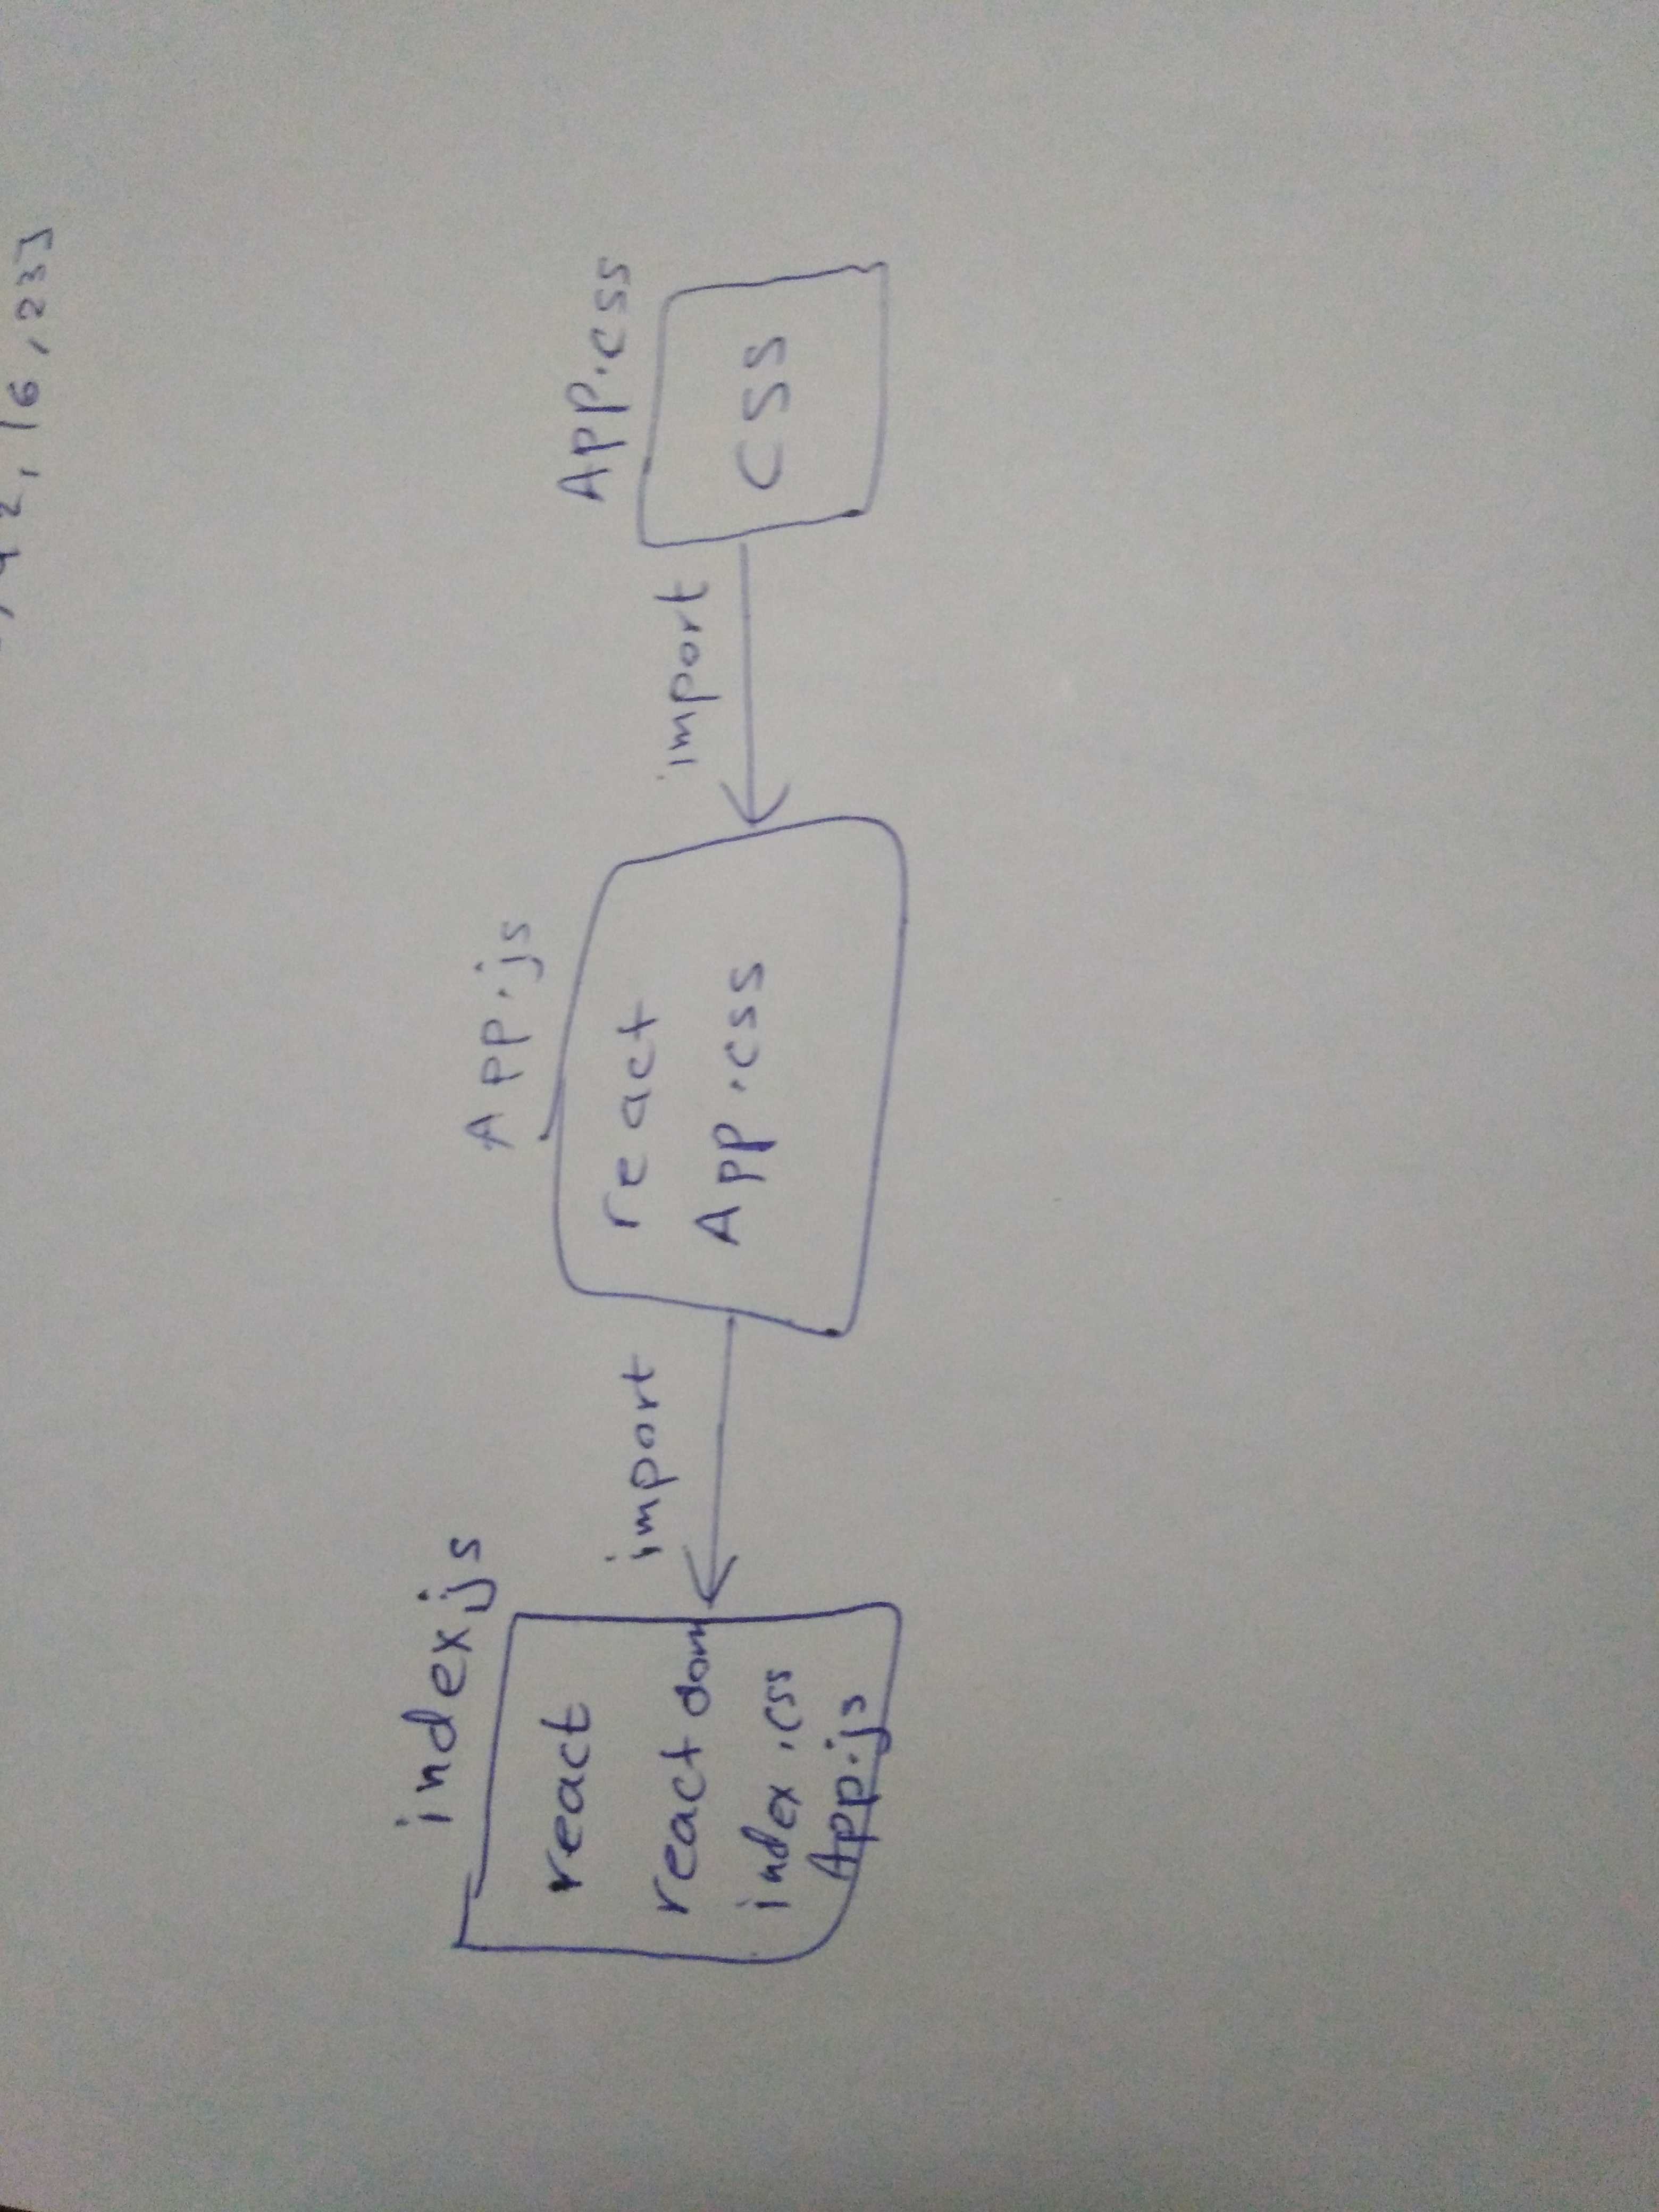 2, 16, 23]
index.js
react
react dom
index.css
App.js
import
App.js
react
App.css
import
App.css
CSS